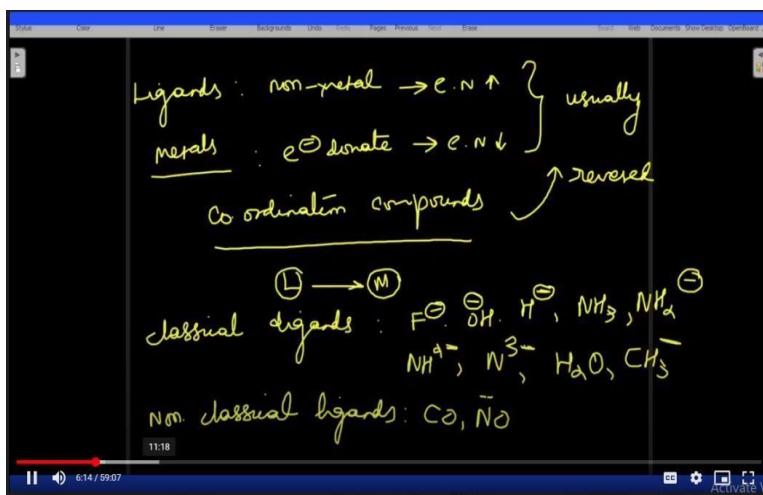 Stylus Color Line Eraser Backgrounds Undo Redo Pages Previous Next Erase Board Web Documents Show Desktop OpenBoard
Ligands : non-metal → e.N ↑ } usually
metals : e⊖ donate → e.N ↓
↗ revesed
Co ordination compounds
Ⓛ → Ⓜ
classical ligands : F⊖, ⊖OH, H⊖, NH₃, NH₂⊖
NH²⁻, N³⁻, H₂O, CH₃⁻
Non. classical ligands : CO, N̄O
11:18
6:14 / 59:07
CC
Activate